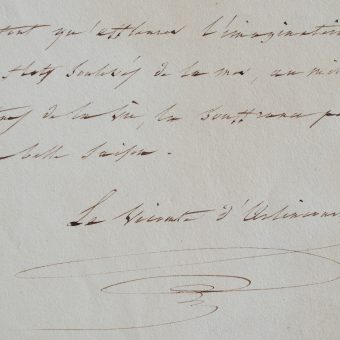 qu'effleurer l'imagination
flots soulevés de la mer, au mi
de la vie, la souffrance p
belle saison.
Le Vicomte d'Arlincour